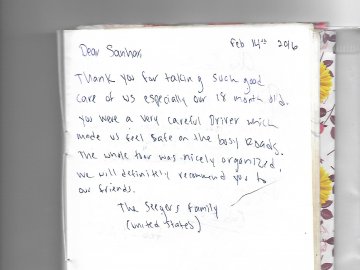 Feb 14th 2016
Dear Sanhar
Thank you for taking such good
care of us especially our 18 month old.
You were a very careful Driver which
made us feel safe on the busy Roads.
The whole tour was nicely organized,
we will definitely recommend you to
our friends.
The Seegers family
(United States)